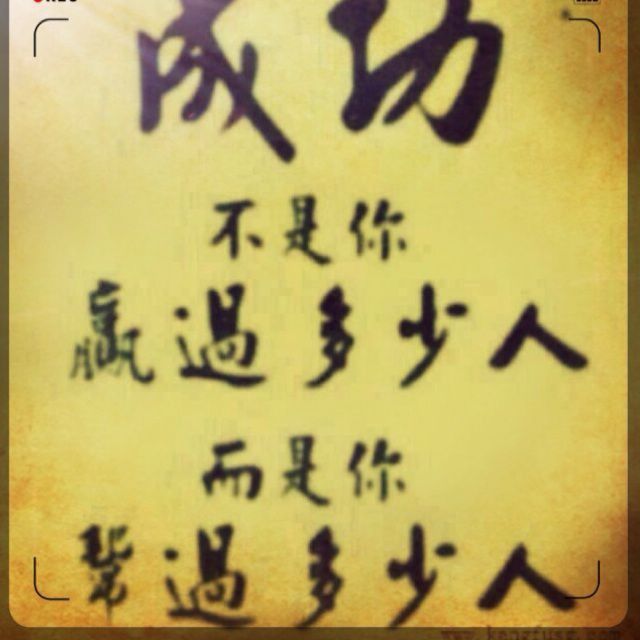 成功
不是你
贏過多少人
而是你
幫過多少人